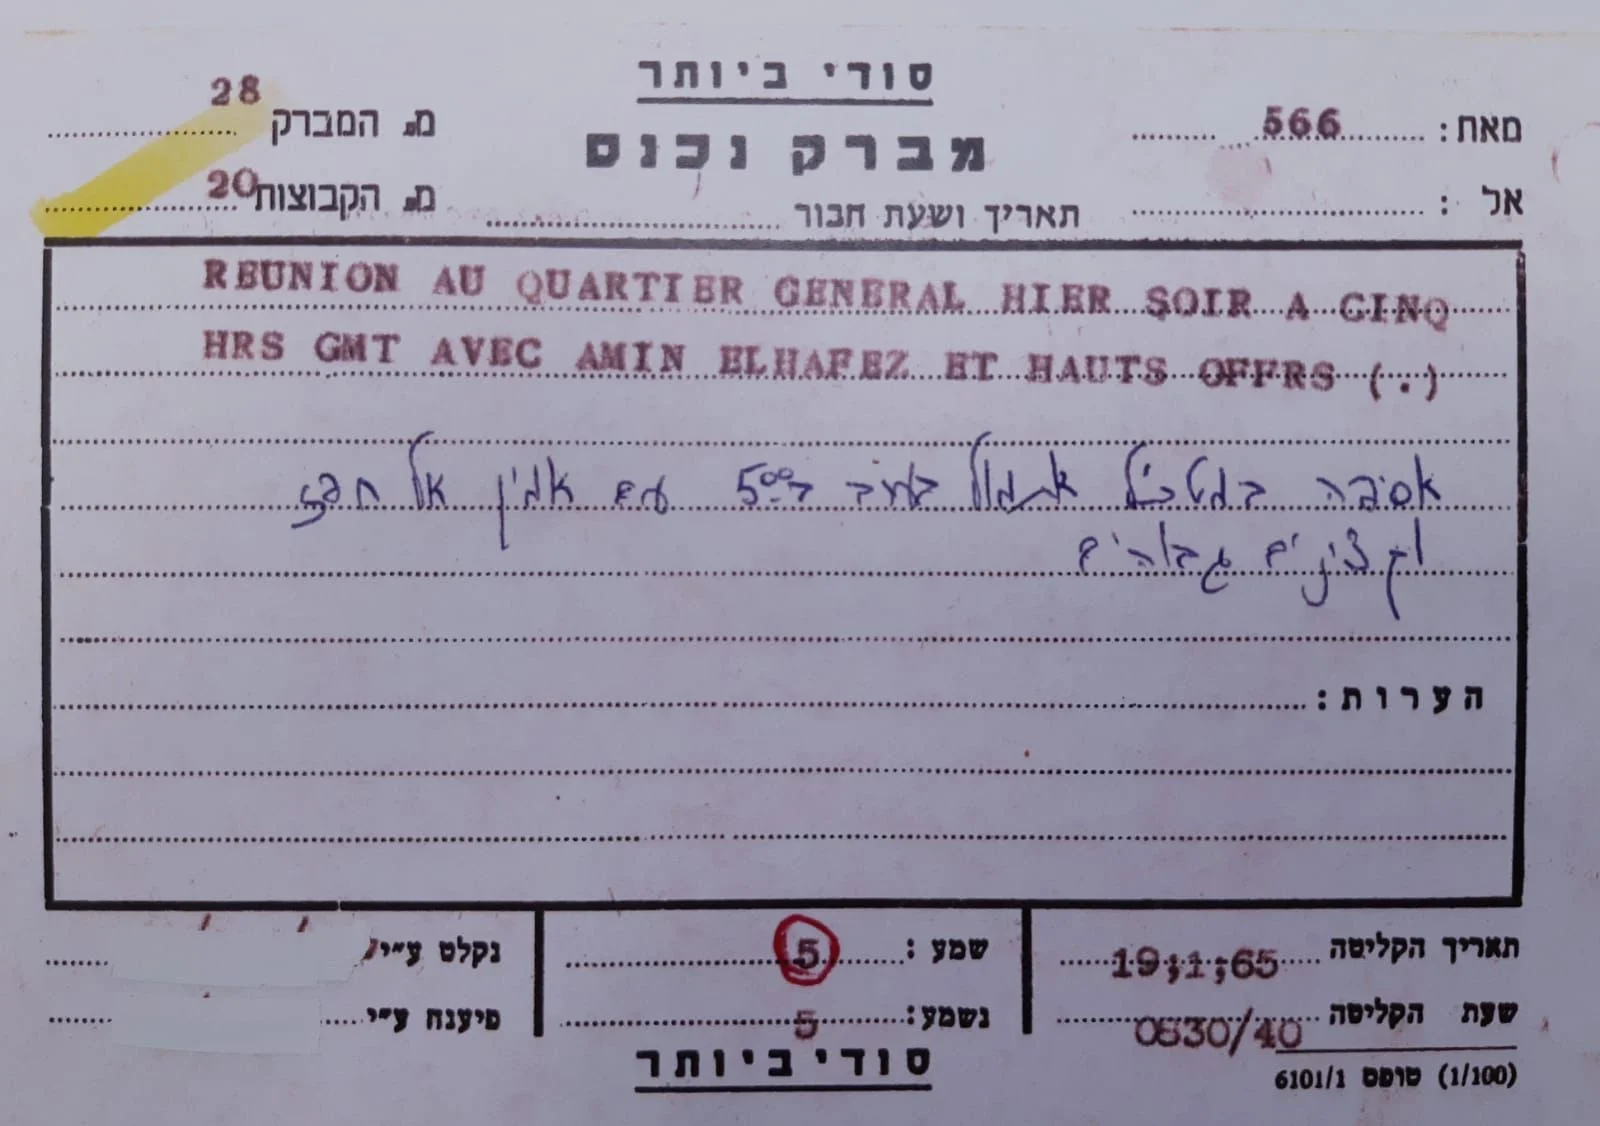 סודי ביותר
מברק נכנס
מאת: 566
אל :
תאריך ושעת חבור
מ. המברק 28
מ. הקבוצות 20
REUNION AU QUARTIER GENERAL HIER SOIR A CINQ
HRS GMT AVEC AMIN ELHAFEZ ET HAUTS OFFRS (.)
אסיפה במטכ״ל אתמול בערב ב-5⁰⁰ עם אמין אל חפז
וקצינים גבוהים
הערות:
תאריך הקליטה 19;1;65
שעת הקליטה 0530/40
שמע: 5
נשמע: 5
נקלט ע״י
פיענח ע״י
סודי ביותר
(1/100) טופס 6101/1